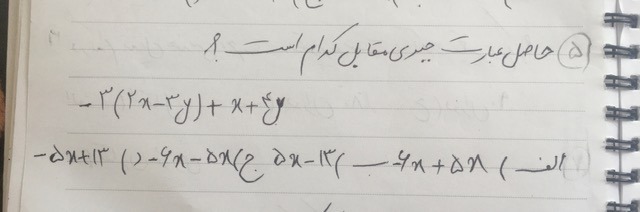 ۵) حاصل عبارت جبری مقابل کدام است؟
-۳(۲x-۳y)+x+۴y
الف) -۶x+۵x ب) ۵x-۱۳ ج) -۶x-۵x د) -۵x+۱۳